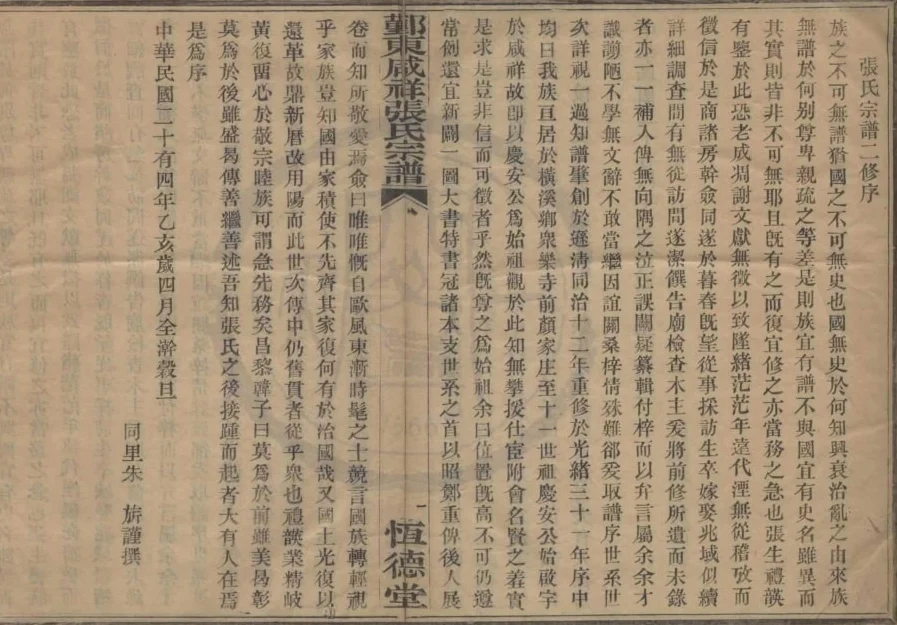 張氏宗譜二修序
族之不可無譜猶國之不可無史也國無史於何知興衰治亂之由來族
無譜於何別尊卑親疏之等差是則族宜有譜不與國宜有史名雖異而
其實則皆非不可無耶且既有之而復宜修之亦當務之急也張生禮韺
有鑒於此恐老成凋謝文獻無徵以致墜緒茫茫年遠代湮無從稽攷而
徵信於是商諸房幹僉同遂於暮春既望從事採訪生卒嫁娶兆域似續
詳細調查間有無從訪問遂潔饌告廟檢查木主爰將前修所遺而未錄
者亦一一補入俾無向隅之泣正誤闕疑纂輯付梓而以弁言屬余余才
識謭陋不學無文辭不敢當繼因誼關桑梓情殊難卻爰取譜序世系世
次詳視一過知譜肇創於遜清同治十二年重修於光緒三十一年序中
均曰我族亙居於橫溪鄉衆樂寺前顏家庄至十一世祖慶安公始啟宇
於咸祥故即以慶安公爲始祖觀於此知無攀援仕宦附會名賢之羞實
是求是豈非信而可徵者乎然既尊之爲始祖余曰位置既高不可仍遵
常例還宜新闢一圖大書特書冠諸本支世系之首以昭鄭重俾後人展
鄞東咸祥張氏宗譜
序
一
恆德堂
卷而知所敬愛焉僉曰唯唯慨自歐風東漸時髦之士競言國族轉輕視
乎家族豈知國由家積使不先齊其家復何有於治國哉又國土光復以
還革故鼎新曆改用陽而此世次傳中仍舊貫者從乎衆也禮韺業精岐
黃復留心於敬宗睦族可謂急先務矣昌黎韓子曰莫爲於前雖美曷彰
莫爲於後雖盛曷傳善繼善述吾知張氏之後接踵而起者大有人在焉
是爲序
中華民國二十有四年乙亥歲四月全澣穀旦
同里朱　旂謹撰